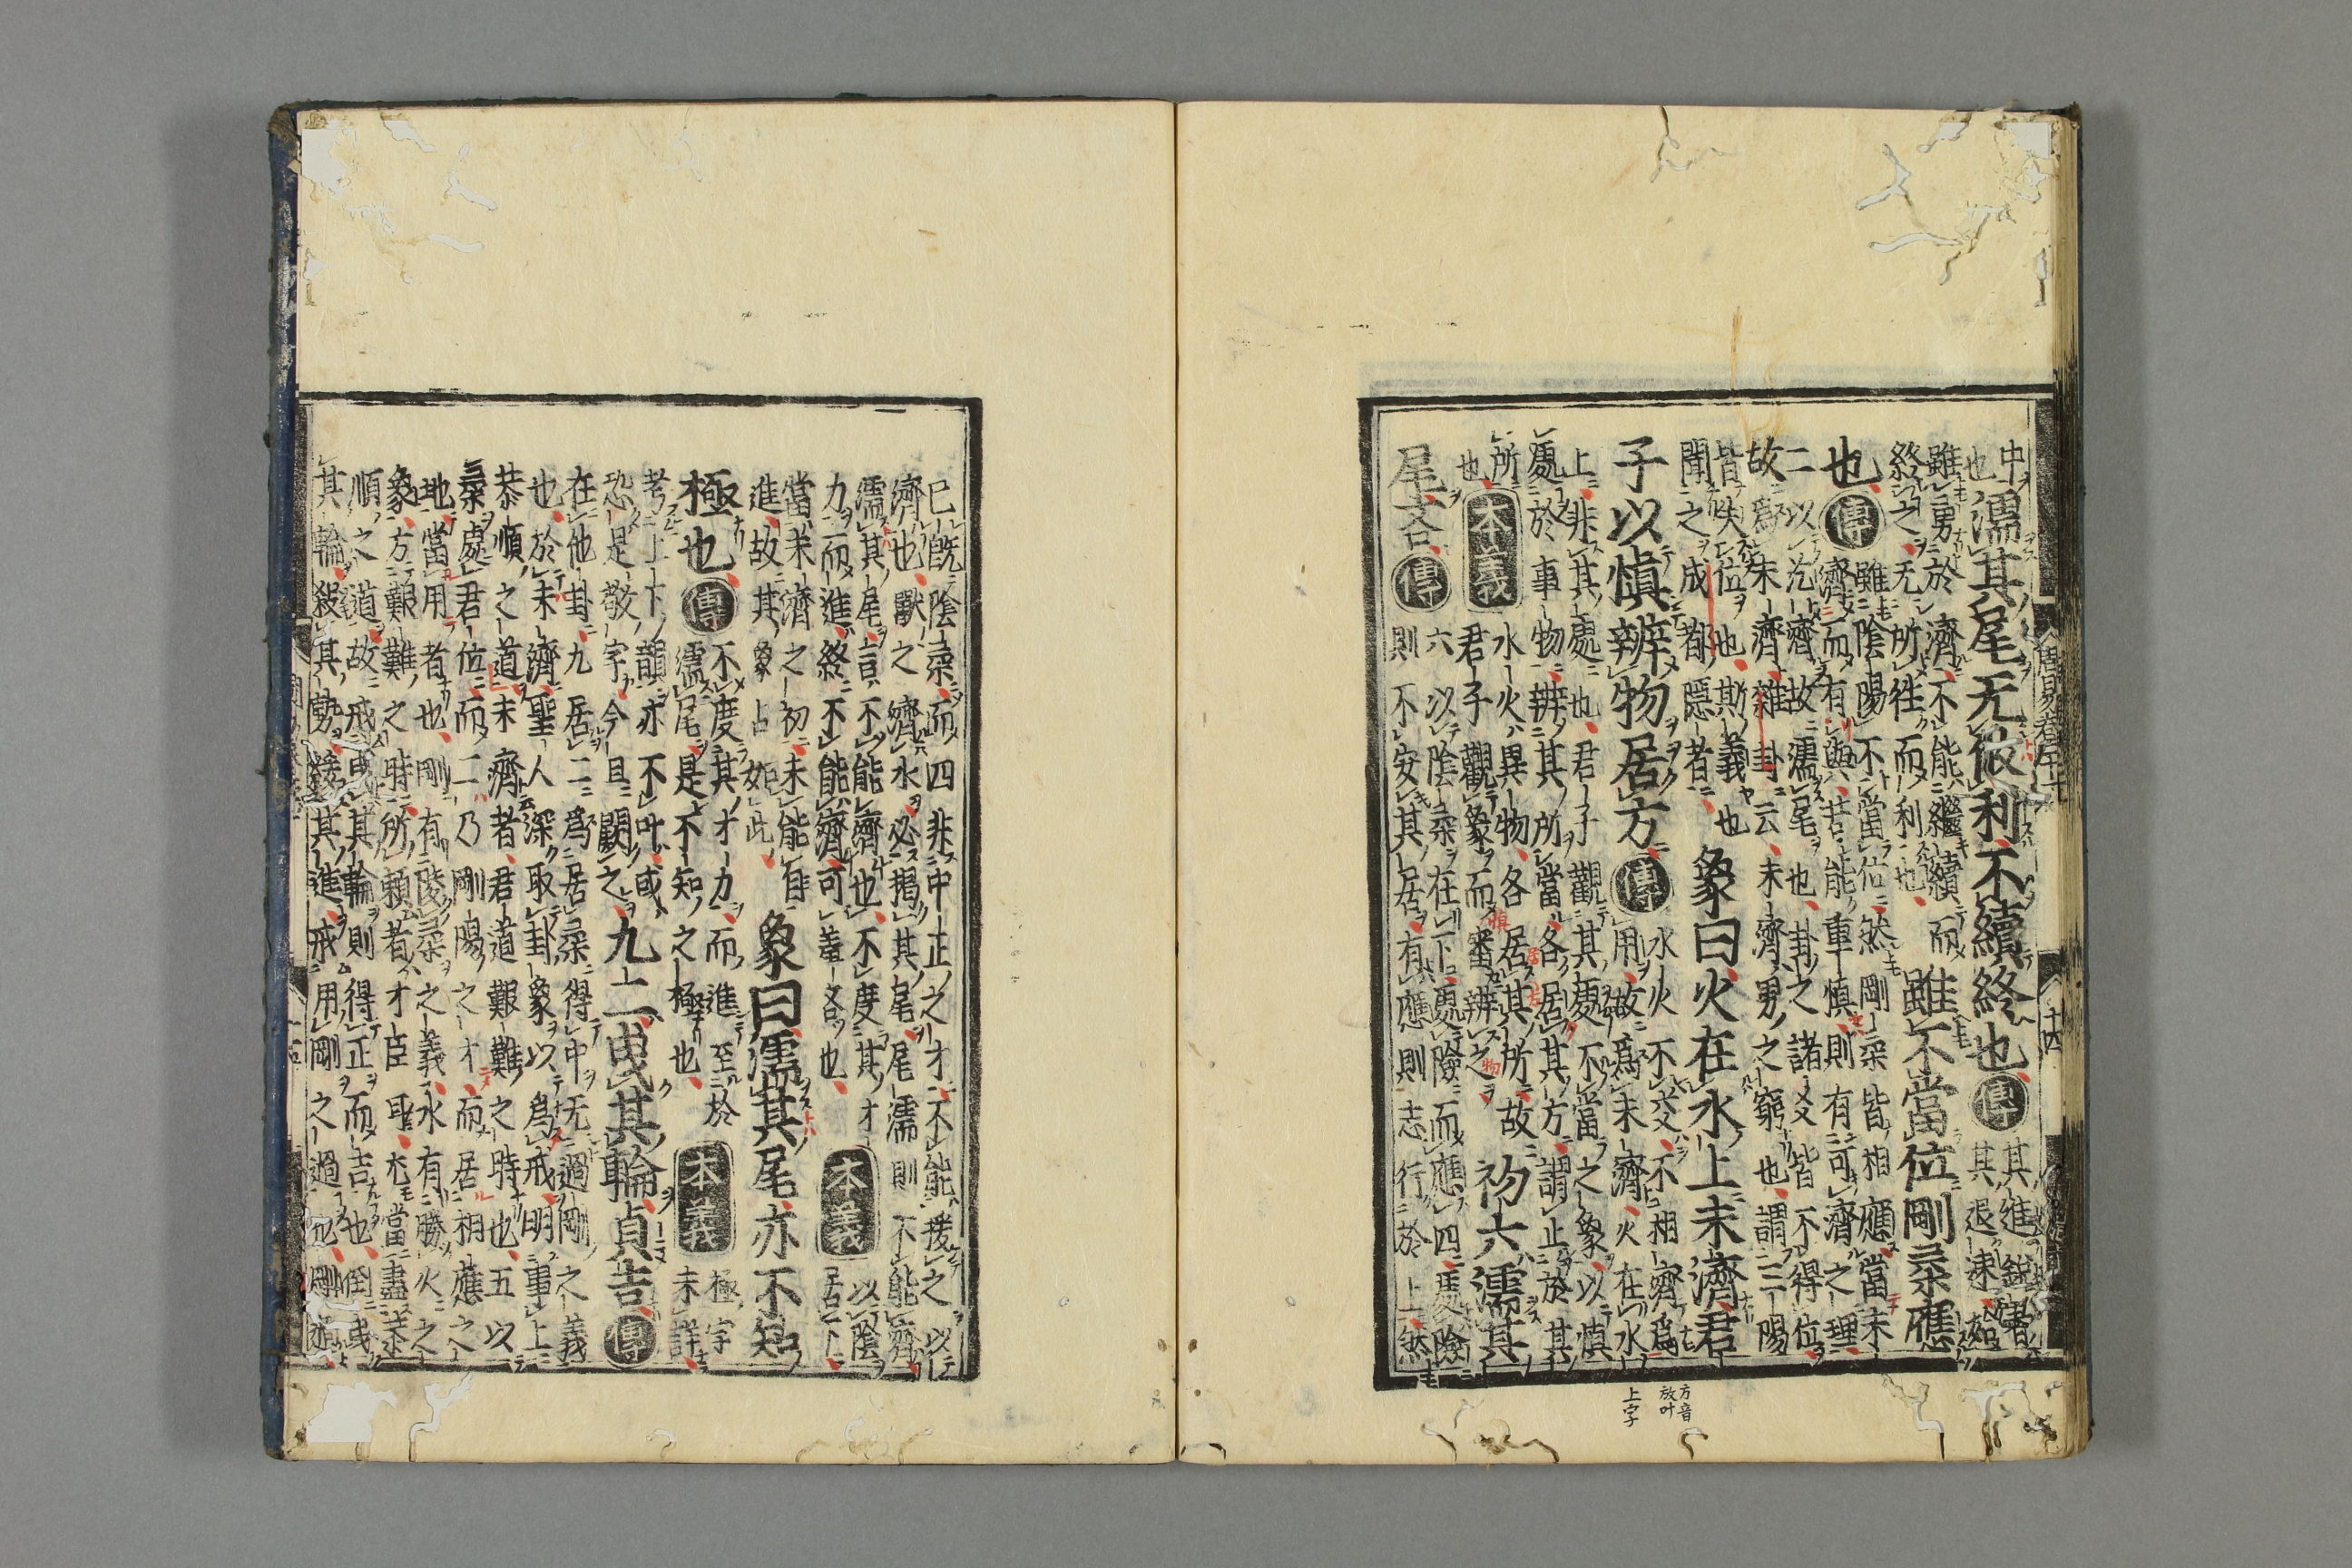 中
也
濡其尾无攸利不續終也
傳
其進銳者
其退速始
雖勇於濟不能繼續而
終之无所徃而利也
雖不當位剛柔應
也
傳
雖陰陽不當位然剛柔皆相應當未
濟而有與若能重慎則有可濟之理
二以汔濟故濡尾也卦之諸爻皆不得位
故爲未濟雜卦云未濟男之窮也謂三陽
皆失位也斯義也
聞之成都隱者
象曰火在水上未濟君
子以慎辨物居方
傳
水火不交不相濟爲
用故爲未濟火在水
上非其處也君子觀其處不當之象以慎
處於事物辨其所當各居其方謂止於其
所
也
本義
水火異物各居其所故
君子觀象而審辨之
初六濡其
尾吝
傳
六以陰柔在下處險而應四處險
則不安其居有應則志行於上然
方音
放叶
上字
已既陰柔而四非中正之才不能援之以
濟也獸之濟水必揭其尾尾濡則不能濟
濡其尾言不能濟也不度其才
力而進終不能濟可羞吝也
本義
以陰
居下
當未濟之初未能自
進故其象占如此
象曰濡其尾亦不知
極也
傳
不度其才力而進至於
濡尾是不知之極也
本義
極字
未詳
考上下韻亦不叶或
恐是敬字今且闕之
九二曳其輪貞吉
傳
在他卦九居二爲居柔得中无過剛之義
也於未濟聖人深取卦象以爲戒明事上
恭順之道未濟者君道艱難之時也五以
柔處君位而二乃剛陽之才而居相應之
地當用者也剛有陵柔之義水有勝火之
象方艱難之時所賴者才臣耳尤當盡恭
順之道故戒曳其輪則得正而吉也倒曳
其輪殺其勢緩其進戒用剛之過也剛過